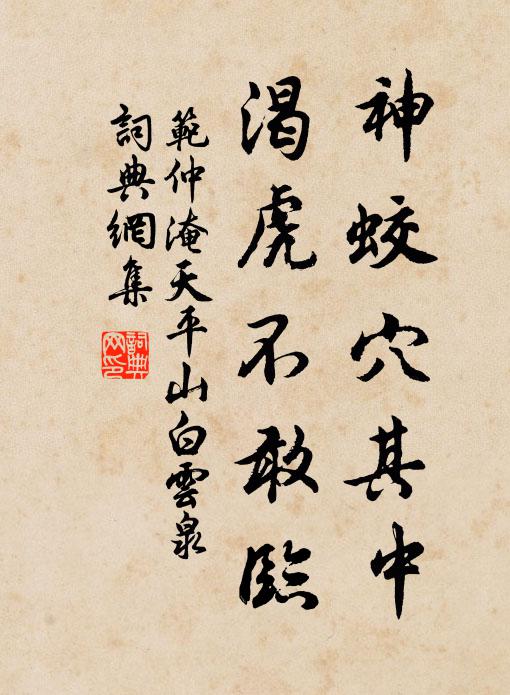 神蛟穴其中
渴虎不敢臨
範仲淹天平山白雲泉
詞典網集
詞典
网印